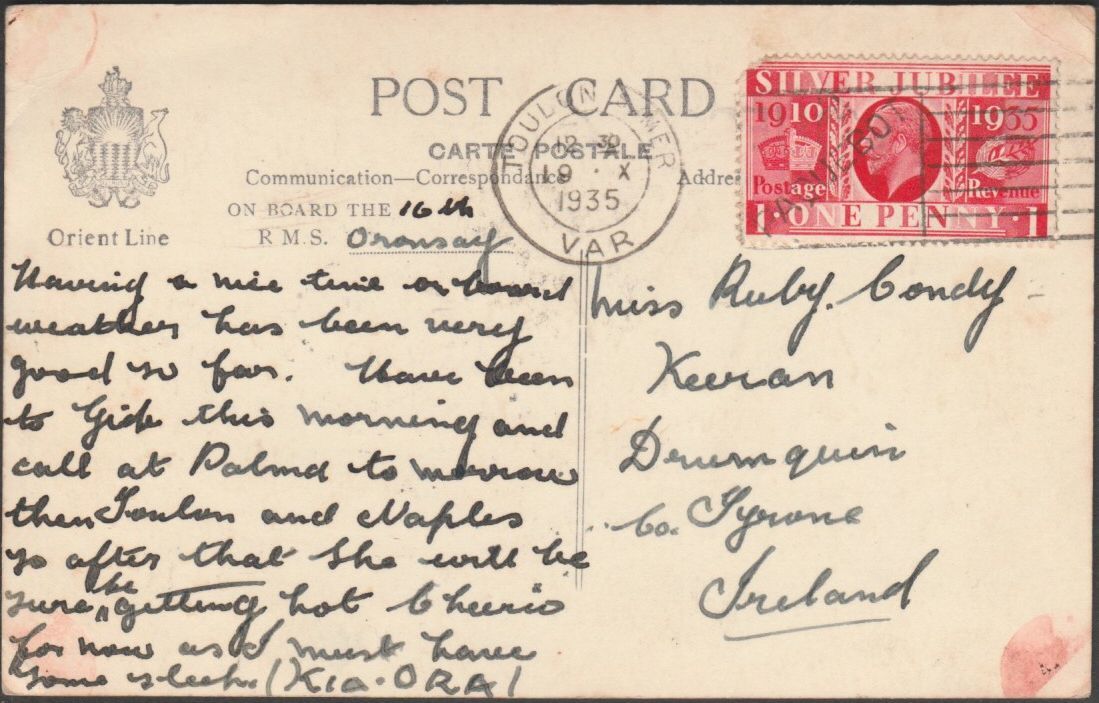 POST CARD
CARTE POSTALE
Communication—Correspondance
Addre
ON BOARD THE 16th
R.M.S. Oronsay
Orient Line
TOULON MER
12 30
19 · X
1935
VAR
SILVER JUBILEE
1910 1935
Postage Revenue
1·ONE PENNY·1
PAQUEBOT
Having a nice time on board
weather has been very
good so far. Have been
to Gib this morning and
call at Palma to morrow
then Toulon and Naples
so after that she will be
sure be getting hot Cheerio
for now as I must have
some sleep. (KIA-ORA)
Miss Ruby. Condy
Keeran
Drumquin
Co. Tyrone
Ireland